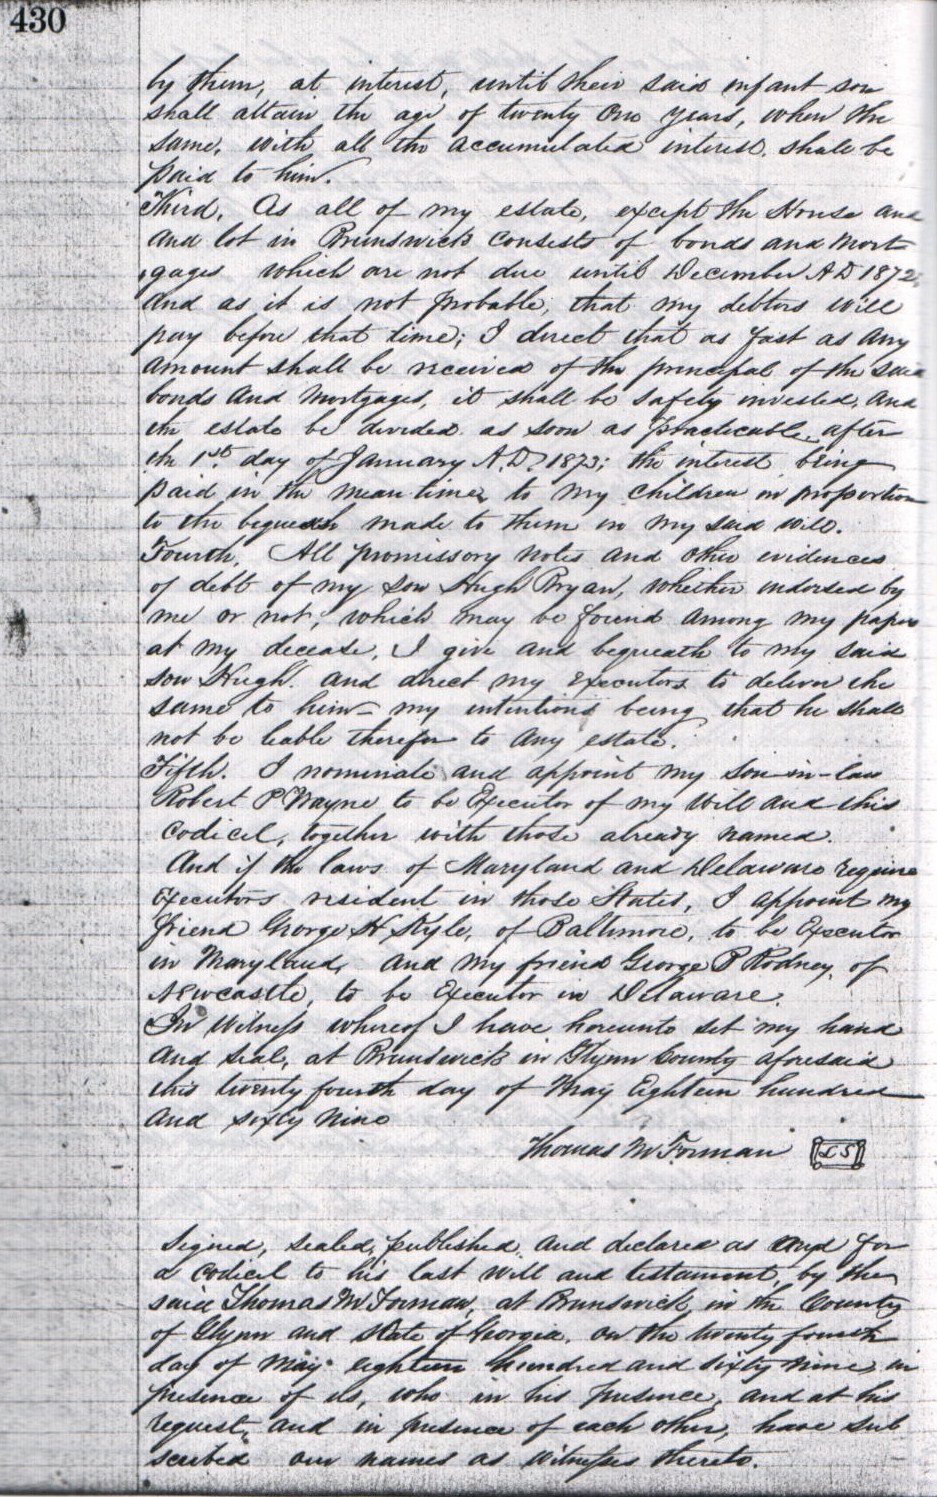 430
by them, at interest, until their said infant son
shall attain the age of twenty one years, when the
same, with all the accumulated interest, shall be
paid to him.
Third, As all of my estate, except the House and
and lot in Brunswick consists of bonds and mort
gages which are not due until December A D 1872,
and as it is not probable, that my debtors will
pay before that time; I direct that as fast as any
amount shall be received of the principal of the said
bonds and mortgages, it shall be safely invested, and
the estate be divided as soon as practicable, after
the 1st day of January A.D. 1873; the interest being
paid in the mean time, to my children in proportion
to the bequests made to them in my said will.
Fourth, All promissory notes and other evidences
of debt of my son Hugh Bryan, whether endorsed by
me or not, which may be found among my paper
at my decease, I give and bequeath to my said
son Hugh. and direct my executors to deliver the
same to him – my intentions being that he shall
not be liable therefor to any estate.
Fifth. I nominate and appoint my son-in-law
Robert P Wayne to be Executor of my Will and this
Codicil, together with those already named.
And if the laws of Maryland and Delaware require
Executors resident in those States, I appoint my
friend George H Kyle, of Baltimore, to be Executor
in Maryland, and my friend George B Rodney, of
Newcastle, to be Executor in Delaware.
In Witness whereof I have hereunto set my hand
and seal, at Brunswick in Glynn County aforesaid
this twenty fourth day of May Eighteen hundred
and sixty nine
Thomas M Forman LS
Signed, sealed, published, and declared as and for
a codicil to his last will and testament, by the
said Thomas M Forman, at Brunswick, in the County
of Glynn and State of Georgia, on the twenty fourth
day of May eighteen hundred and sixty nine, in
presence of us, who in his presence, and at his
request, and in presence of each other, have sub
scribed our names as witnesses thereto.